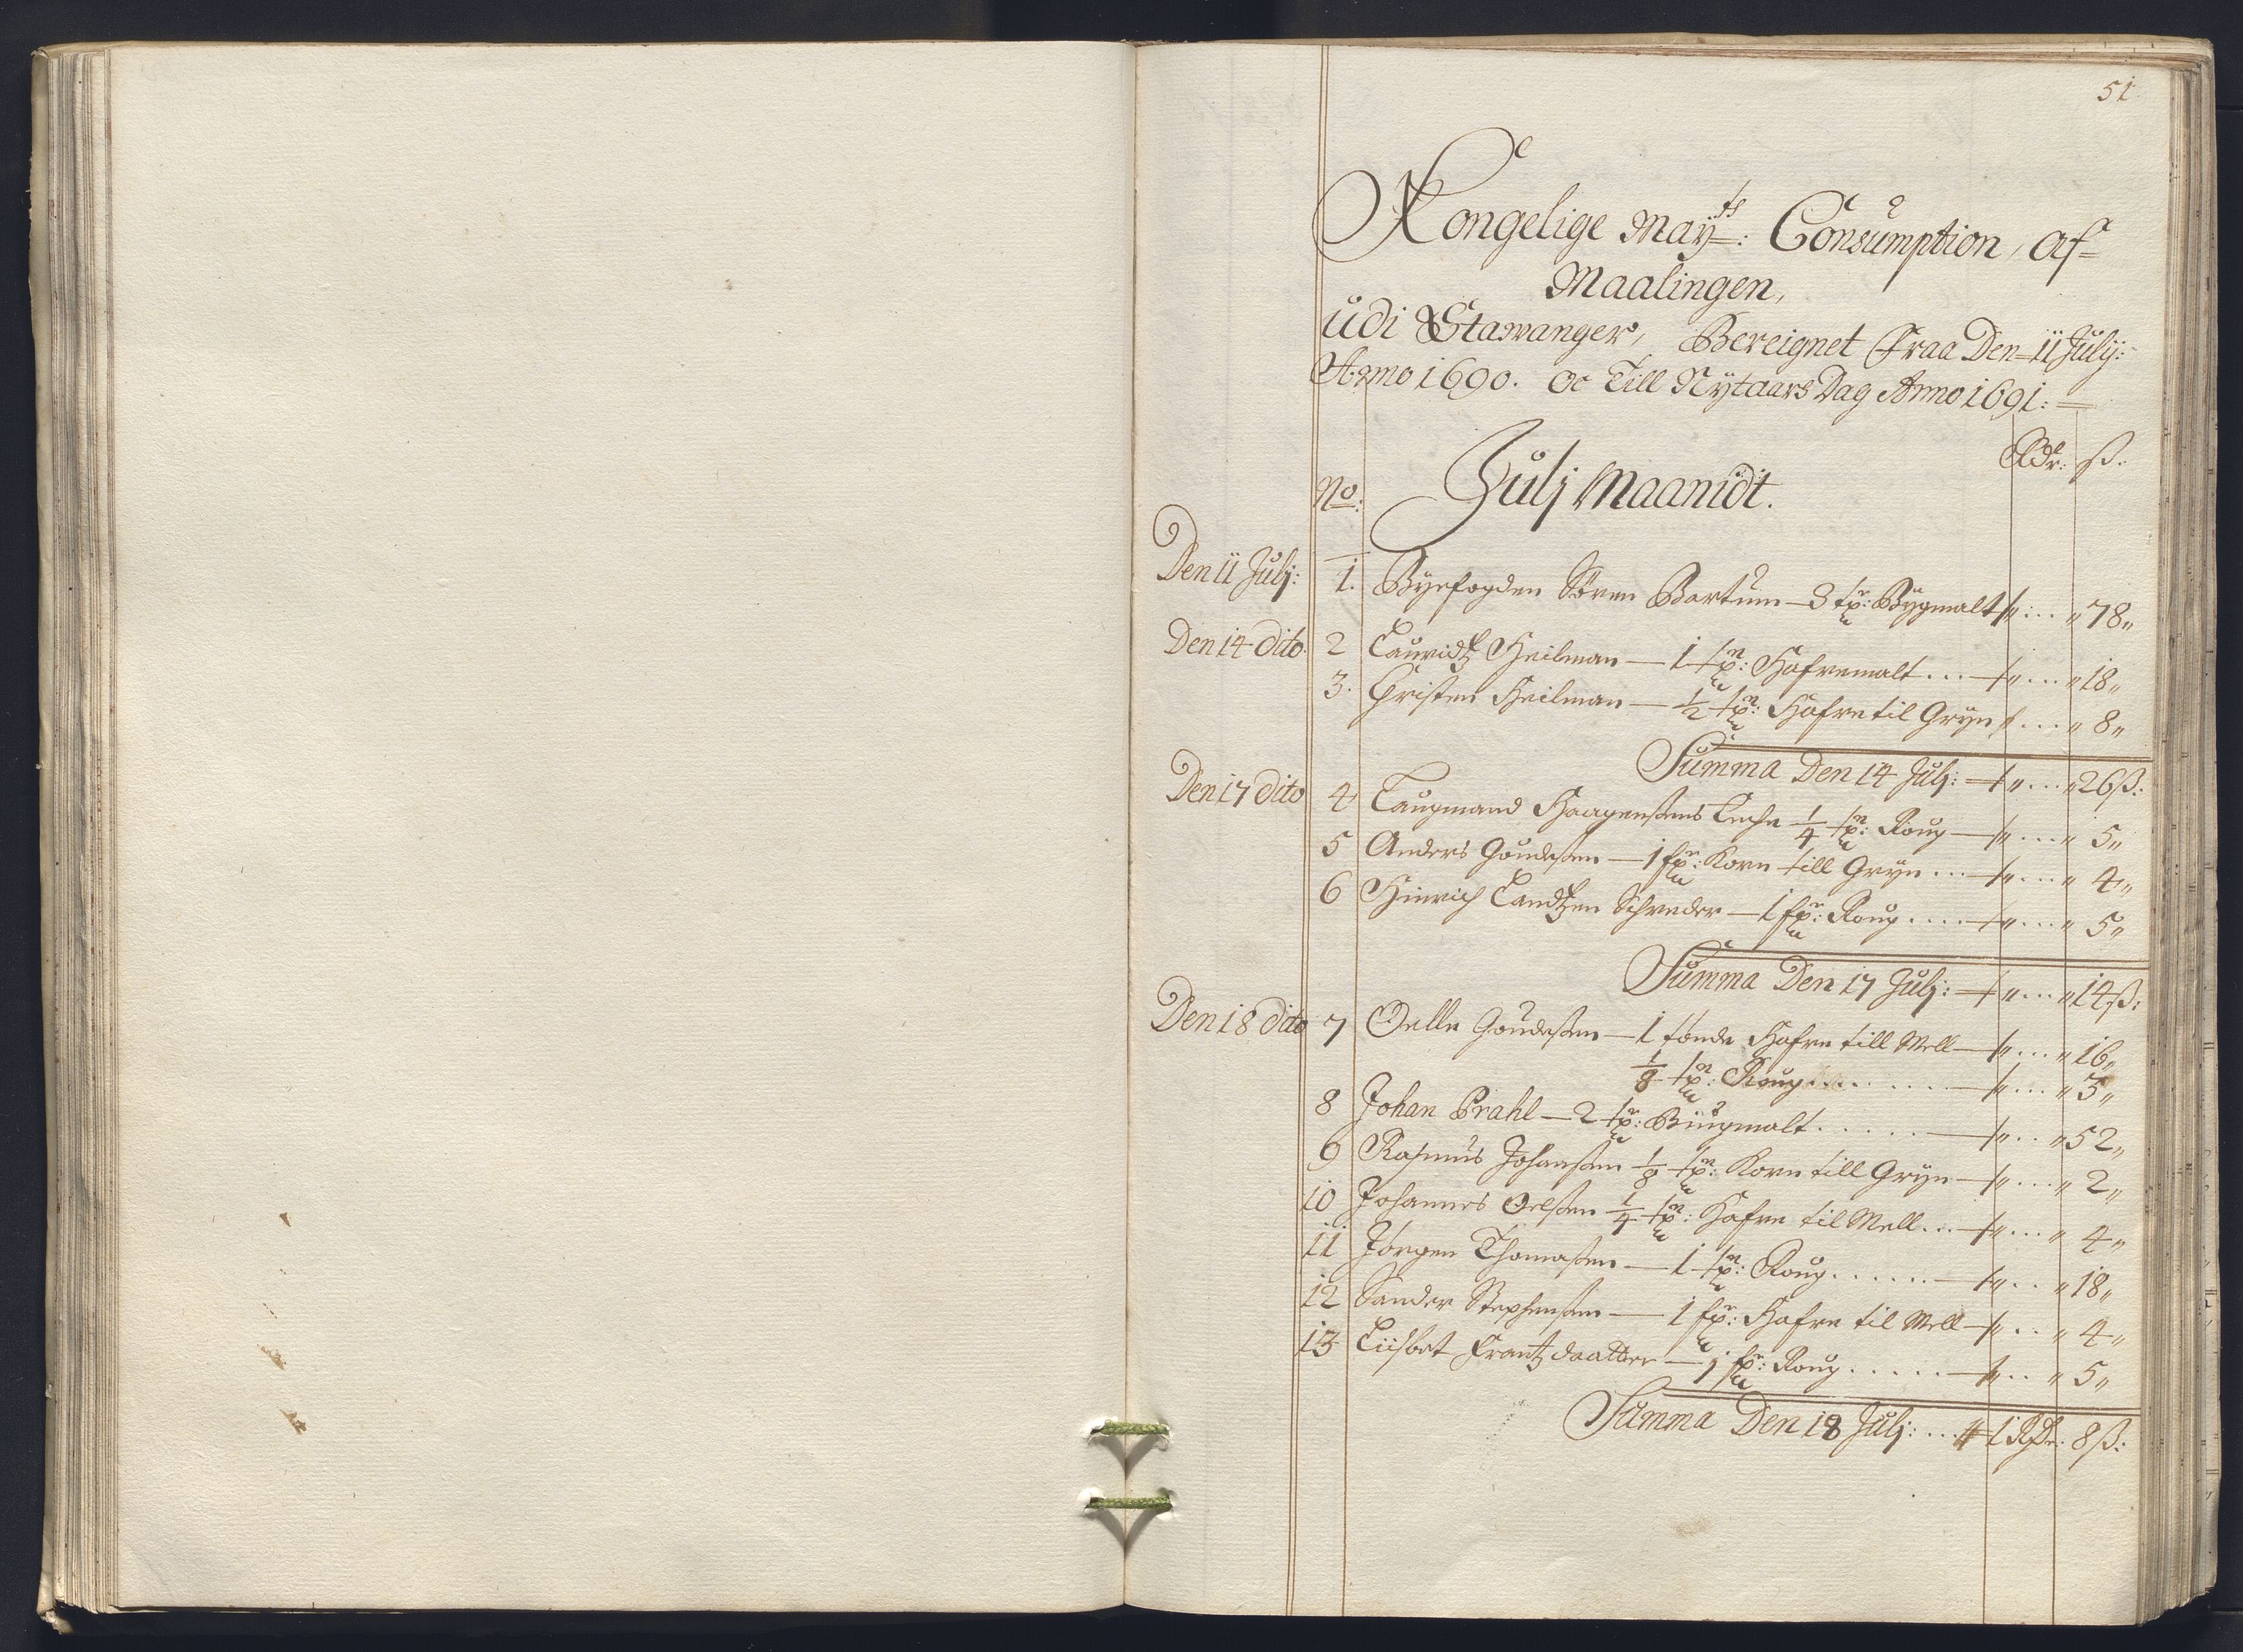 51
Kongelige Mayts: Consumption, af=
Maalingen,
udi Stawanger, Bereignet Fraa Den 11 July:
Anno 1690. Oc Till Nytaars Dag Anno 1691:
Rdr: ß:
No: Julj Maanidt.
Den 11 Julj: 1. Byefogden Sören Bartum — 3 tr: Bygmalt „ ... „ 78„
Den 14 Dito 2 Lauridtz Heilman — 1 tn: Hafremalt ... „ ... „ 18„
3. Christen Heilman — 1/2 tn: Hafre til Gryn ... „ 8„
Summa Den 14 Julj: „ ... „ 26 ß:
Den 17 Dito 4 Laugmand Haagensens Enche 1/4 tn: Roug „ ... „ 5„
5 Anders Goudesen — 1 fr: Korn till Gryn ... „ ... „ 4„
6 Hinrich Schreder — 1 fr: Roug .... „ ... „ 5„
Summa Den 17 Julj: „ ... „ 14 ß:
Den 18 Dito 7 Oelle Goudesen — 1 tönde Hafre till Mell „ ... „ 16„
1/8 tn: Roug ........ „ ... „ 3„
8 Johan Prahl — 2 tr: Bÿugmalt ...... „ .. „ 52„
9 Rasmus Johansen 1/8 tn: Korn till Gryn „ ... „ 2„
10 Johannes Oelsen 1/4 tn: Hafre til Mell ... „ ... „ 4„
11 Jörgen Thomasen — 1 tn: Roug ...... „ .. „ 18„
12 Sander Stephensen — 1 fr: Hafre til Mell „ .. „ 4„
13 Liisbet Frantzdaatter — 1 fr: Roug ..... „ .. „ 5„
Summa Den 18 Julj: ... 1 Rdr: 8 ß: